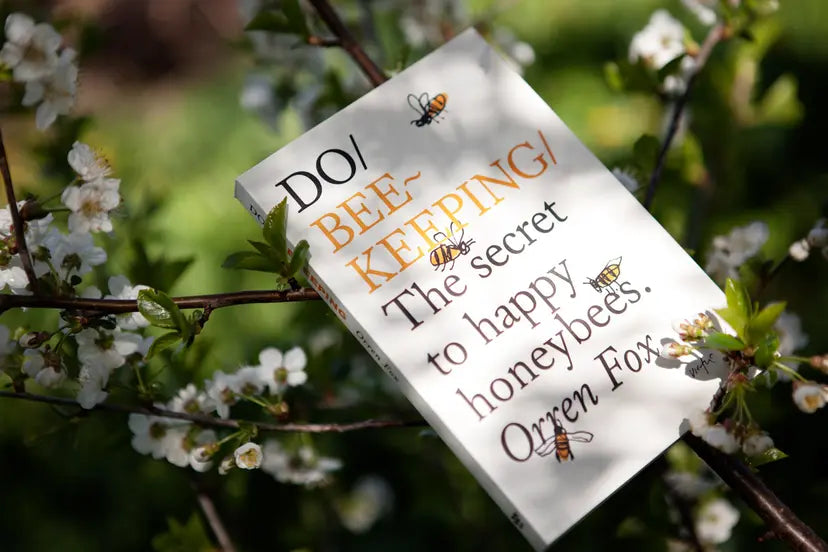 DO/
BEE~
KEEPING/
The secret
to happy
honeybees.
Orren Fox
Orren Fox